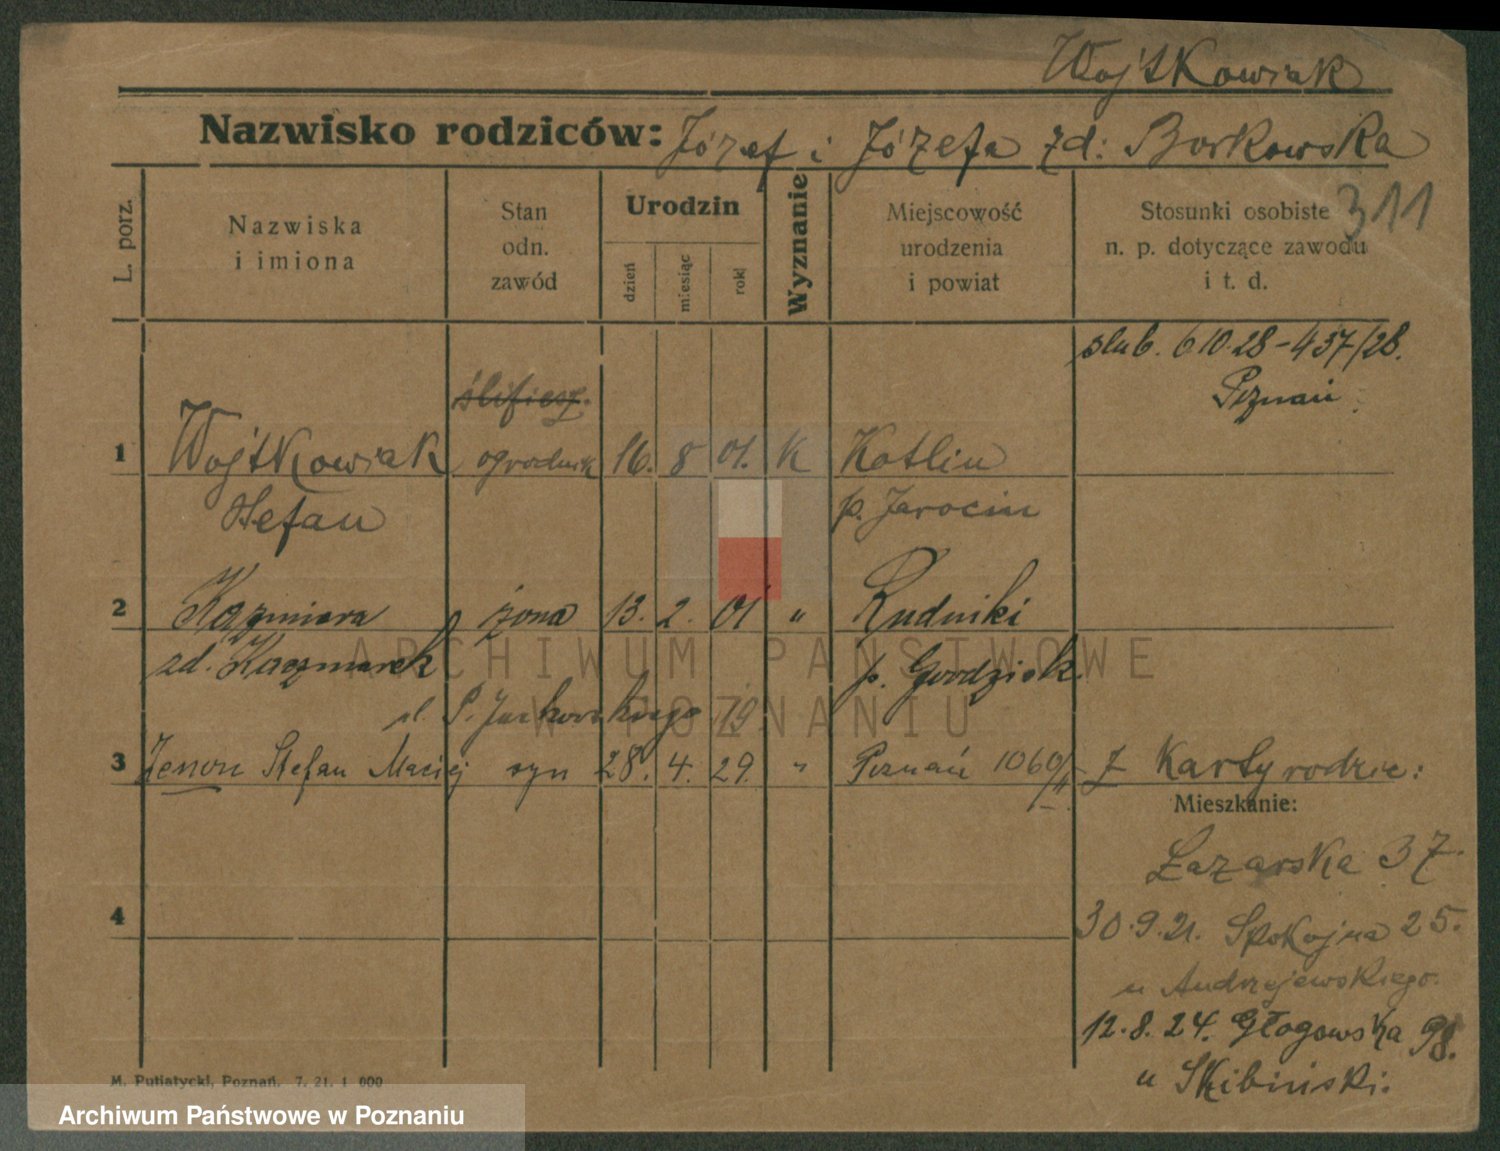 Wojtkowiak
Nazwisko rodziców: Józef i Józefa zd: Borkowska
311
L. porz.
Nazwiska
i imiona
Stan
odn.
zawód
Urodzin
dzień
miesiąc
rok
Wyznanie
Miejscowość
urodzenia
i powiat
Stosunki osobiste
n. p. dotyczące zawodu
i t. d.
ślub. 6 10.28-437/28.
Poznań
ślifierz.
1 Wojtkowiak ogrodnik 16. 8 01. K Kotlin
Stefan p. Jarocin
2 Kazmiera żona 13. 2. 01 " Rudniki
zd. Kaczmarek p. Grodzisk.
P. Jackowskiego 19
3 Zenon Stefan Maciej syn 28. 4. 29. " Poznań 1060/ z Karty rodzic:
Mieszkanie:
Łazarska 37.
4
30.9.21. Spokojna 25.
u Andrzejewskiego.
12.8.24. Głogowska 98.
u Skibiński.
M. Putiatycki, Poznań. 7. 21. 1 000
ARCHIWUM PAŃSTWOWE
W POZNANIU
Archiwum Państwowe w Poznaniu